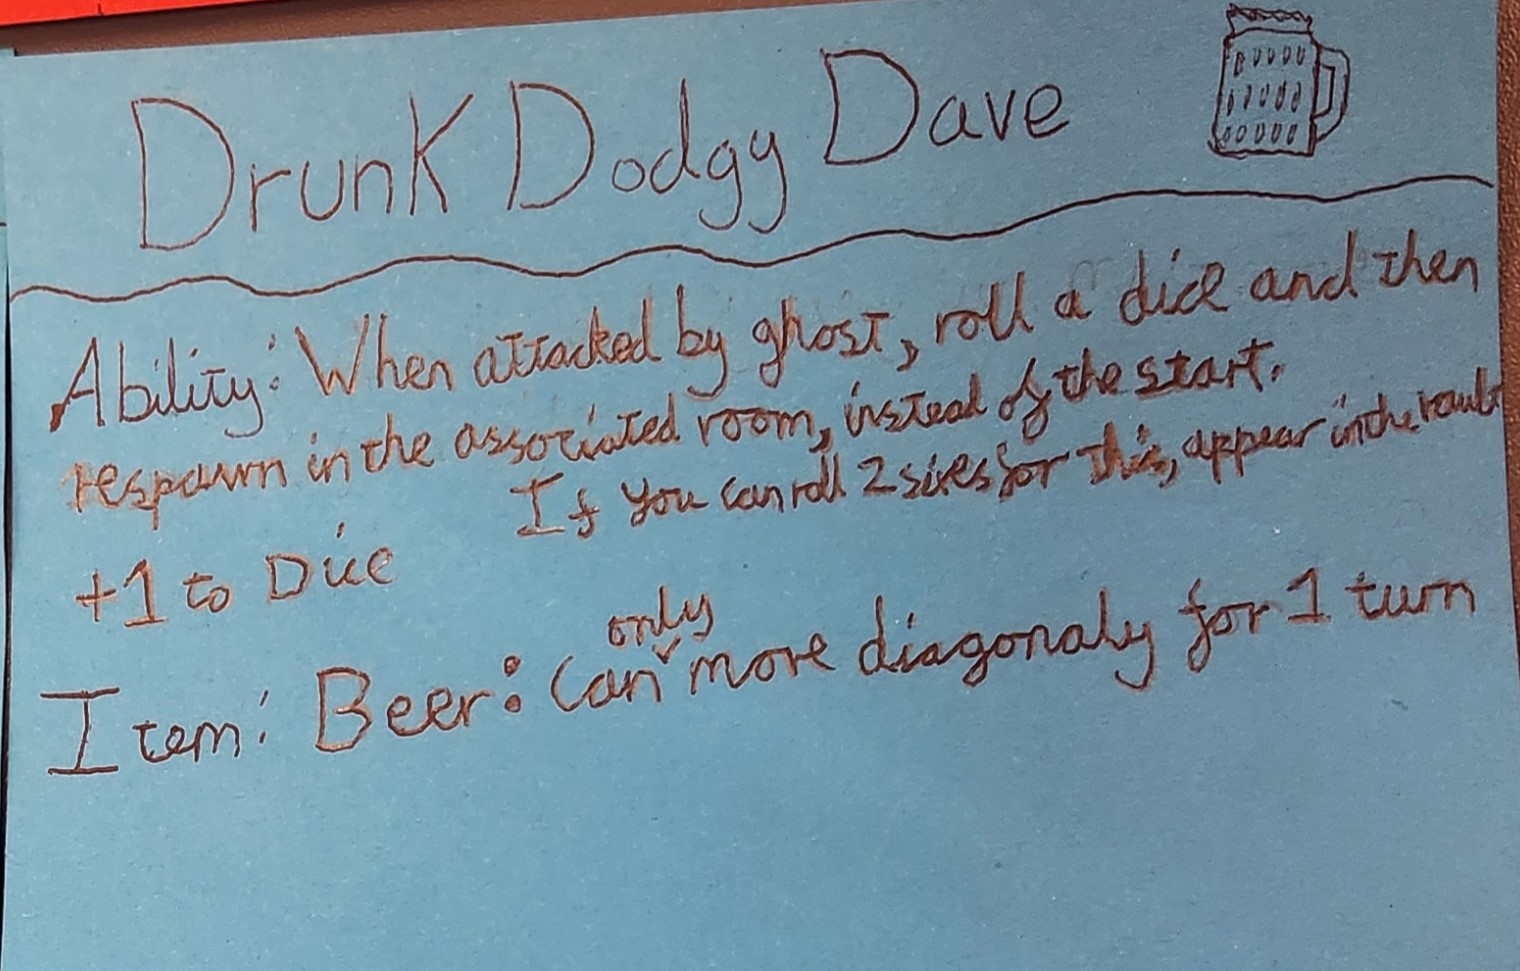 Drunk Dodgy Dave
Ability: When attacked by ghost, roll a dice and then
respawn in the associated room, instead of the start.
If you can roll 2 sixes for this, appear in the vault
+1 to Dice
only
Item: Beer: Can move diagonaly for 1 turn